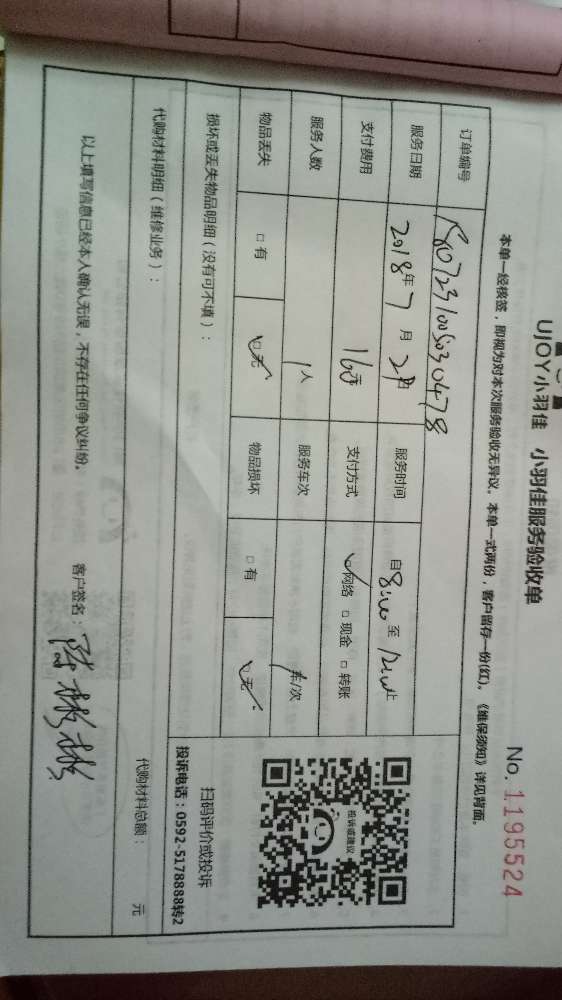 UJOY小羽佳 小羽佳服务验收单
No. 1195524
本单一经核签，即视为对本次服务验收无异议。本单一式两份，客户留存一份(红)。《维保须知》详见背面。
订单编号
服务日期 2018年7月29日 服务时间 自8:00至12:00止
支付费用 160元 支付方式 ☑网络 □现金 □转账
服务人数 1人 服务车次 车/次
物品丢失 □有 ☑无 物品损坏 □有 ☑无
损坏或丢失物品明细（没有可不填）：
代购材料明细（维修业务）： 代购材料总额： 元
投诉或建议
扫码评价或投诉
投诉电话：0592-5178888转2
以上填写信息已经本人确认无误，不存在任何争议纠纷。 客户签名：